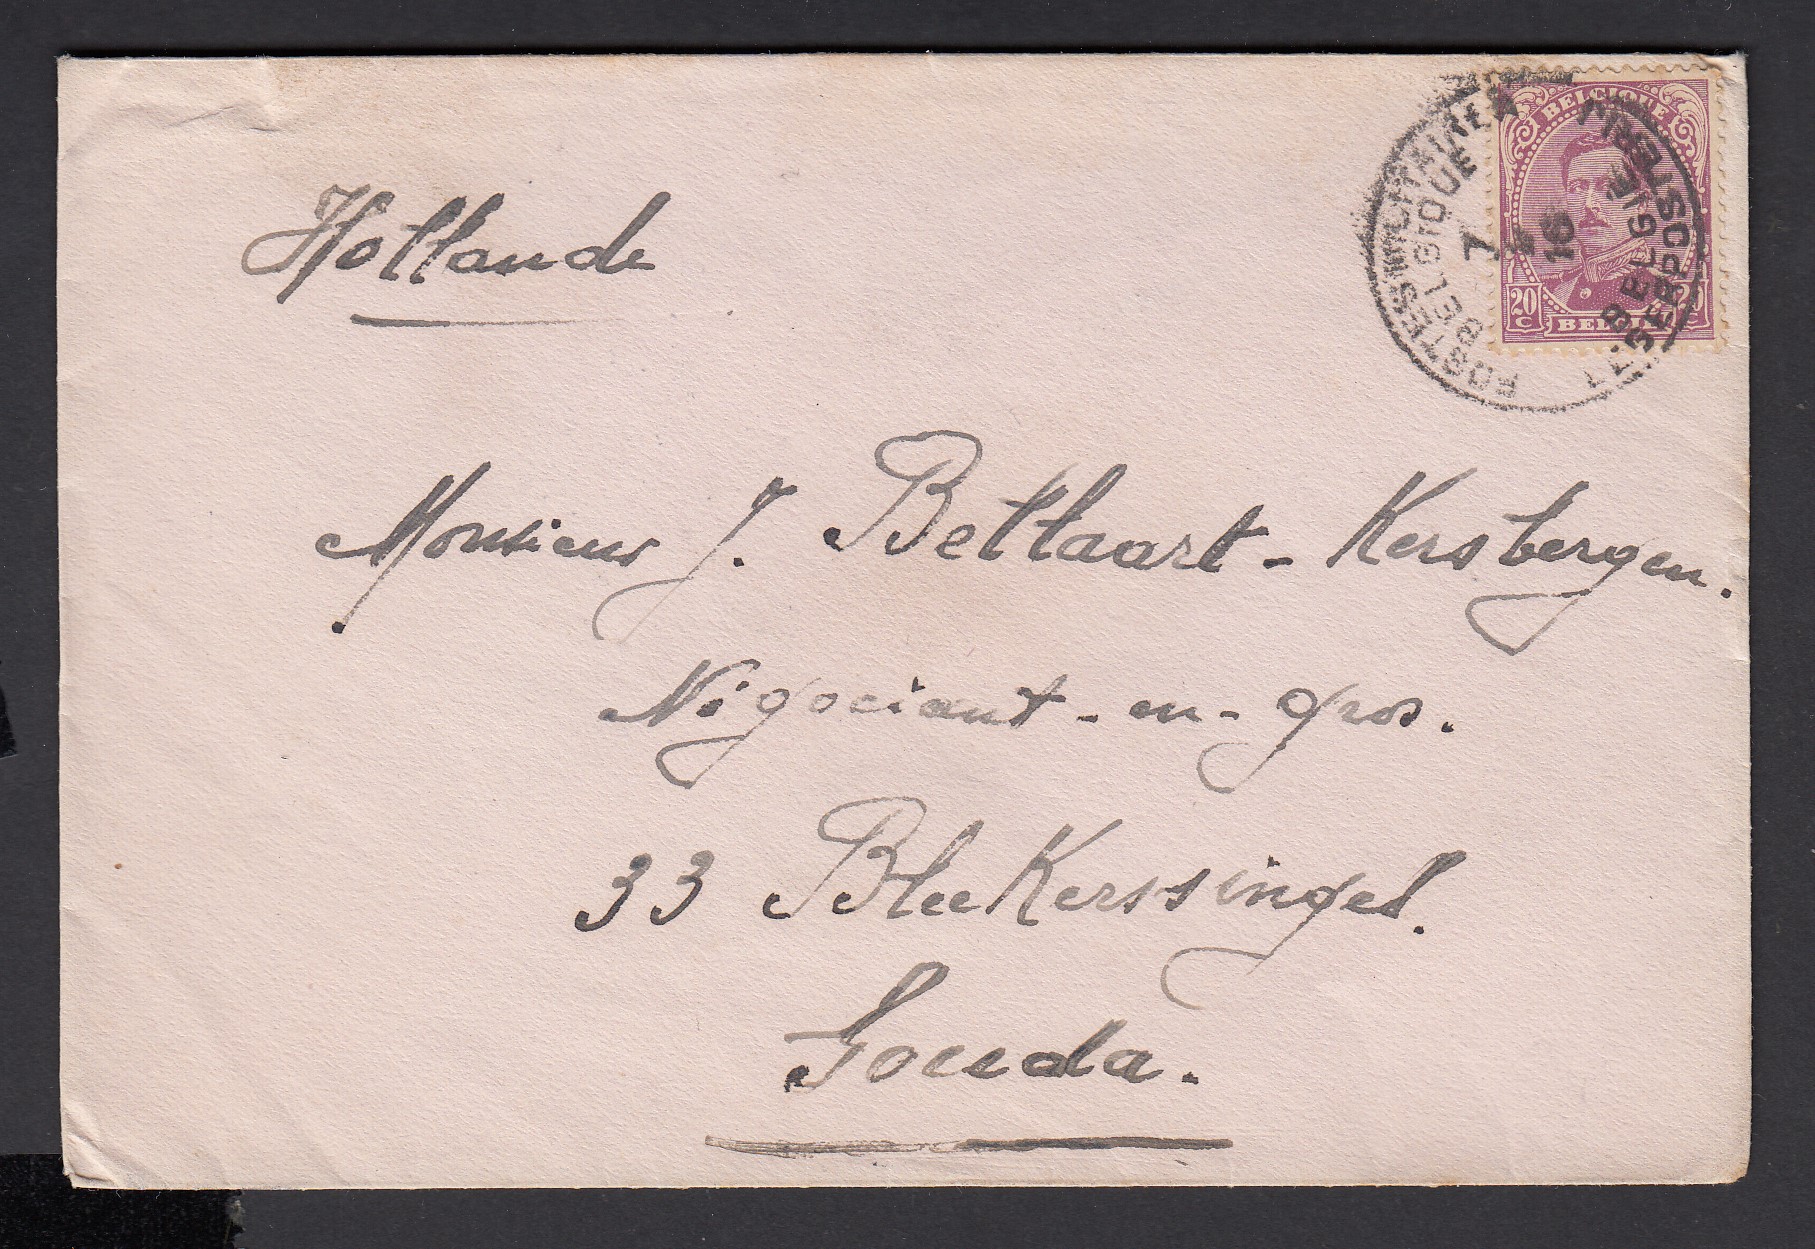 Hollande
POSTES MILITAIRES
BELGIQUE
7
16
BELGIE
LEGERPOSTERIJ
BELGIQUE
20 C
BELGIË
Monsieur J. Bellaart - Kersbergen.
Négociant - en - gros.
33 Bleekerssingel.
Gouda.